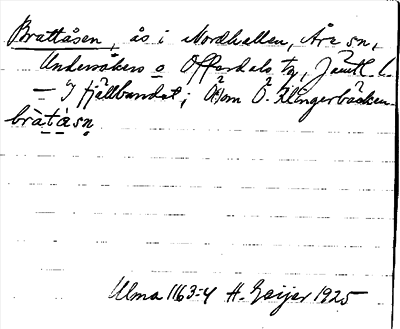 Brattåsen, ås i Nordhallen, Åre sn,
Undersåkers o Offerdals tg, Jämtl. l.
— I fjällbandet; Ånom Ö. Klingerbäcken.
bràtåsn
Ulma 1163:4 H. Geijer 1925